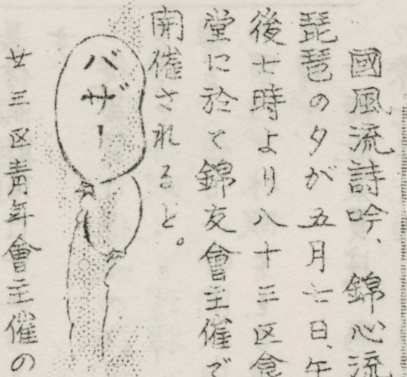 國風流詩吟、錦心流
琵琶の夕が五月七日、午
後七時より八十三区食
堂に於て錦友會主催で
開催されると。
バザー
廿三区青年會主催の